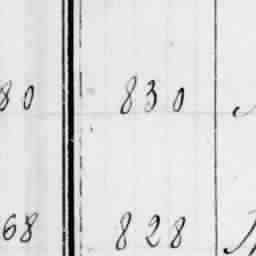 80 830
68 828